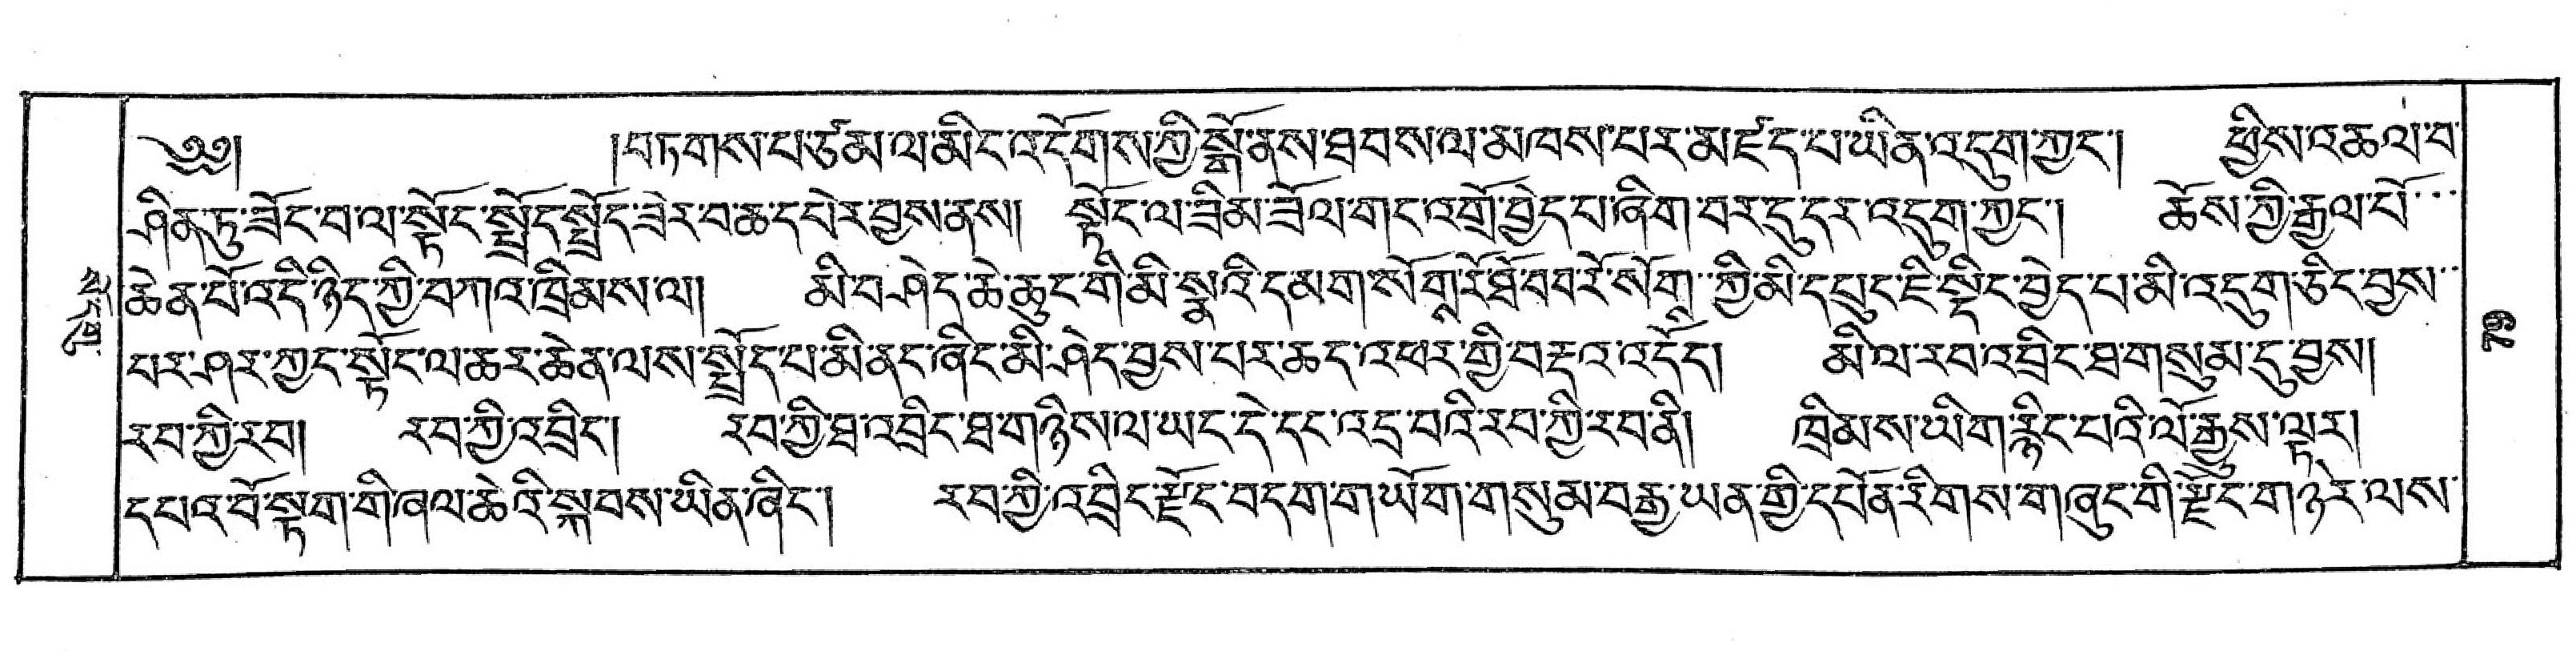 ༄༅། །བཏགས་པ་ཙམ་ལ་མིང་འདོགས་ཀྱི་སྒྲོ་ནས་ཐབས་ལ་མཁས་པར་མཛད་པ་ཡིན་འདུག་ཀྱང་། ཕྱིས་འཆལ་བ་
ཤིན་ཏུ་ཟློང་བ་ལ་སྟོང་སྤྲོད་སྤྲོད་ཟེར་བ་ཆད་པེར་བྱས་ནས། སྟོང་ལ་ཟིམ་ཟོལ་གང་འགྲོ་བྱེད་པ་ཞིག་བར་དུ་དར་འདུག་ཀྱང་། ཆོས་ཀྱི་རྒྱལ་པོ་
ཆེན་པོ་འདི་ཉིད་ཀྱི་བཀའ་ཁྲིམས་ལ། མི་བཤེད་ཆེ་ཆུང་གི་མི་སྣའི་དམག་སོགྲོ་ཐོབབ་རེ་སོག་ཀྱི་མི་དཔུང་ཇི་སྡིང་བྱེད་པ་མི་འདུག་ཅིང་བྱས་
པར་ཤར་ཀྱང་སྟོང་ལ་ཆར་ཆེན་ལས་སྤྲོད་པ་མི་ནང་ཞིང་མི་ཤེད་བྱས་པར་ཆད་འཕར་གྱི་བརྡའ་འདོད། མི་ལ་རབ་འབྲིང་ཐ་གསུམ་དུ་བྱས།
རབ་ཀྱི་རབ། རབ་ཀྱི་འབྲིང་། རབ་ཀྱི་ཐ་འབྲིང་ཐ་གཉིས་ལ་ཡང་དེ་དང་འདྲ་བའི་རབ་ཀྱི་རབ་ནི། ཁྲིམས་ཡིག་རྙིང་པའི་ལོ་རྒྱུས་ལྟར།
དཔའ་བོ་སྟག་གི་ཞལ་ཆེའི་སྐབས་ཡིན་ཞིང་། རབ་ཀྱི་འབྲིང་རྫོང་བདག་གཡོག་གསུམ་བརྒྱ་ཡན་གྱི་དཔོན་རིགས་གཞུང་གི་རྫོང་གཉེར་ལས་